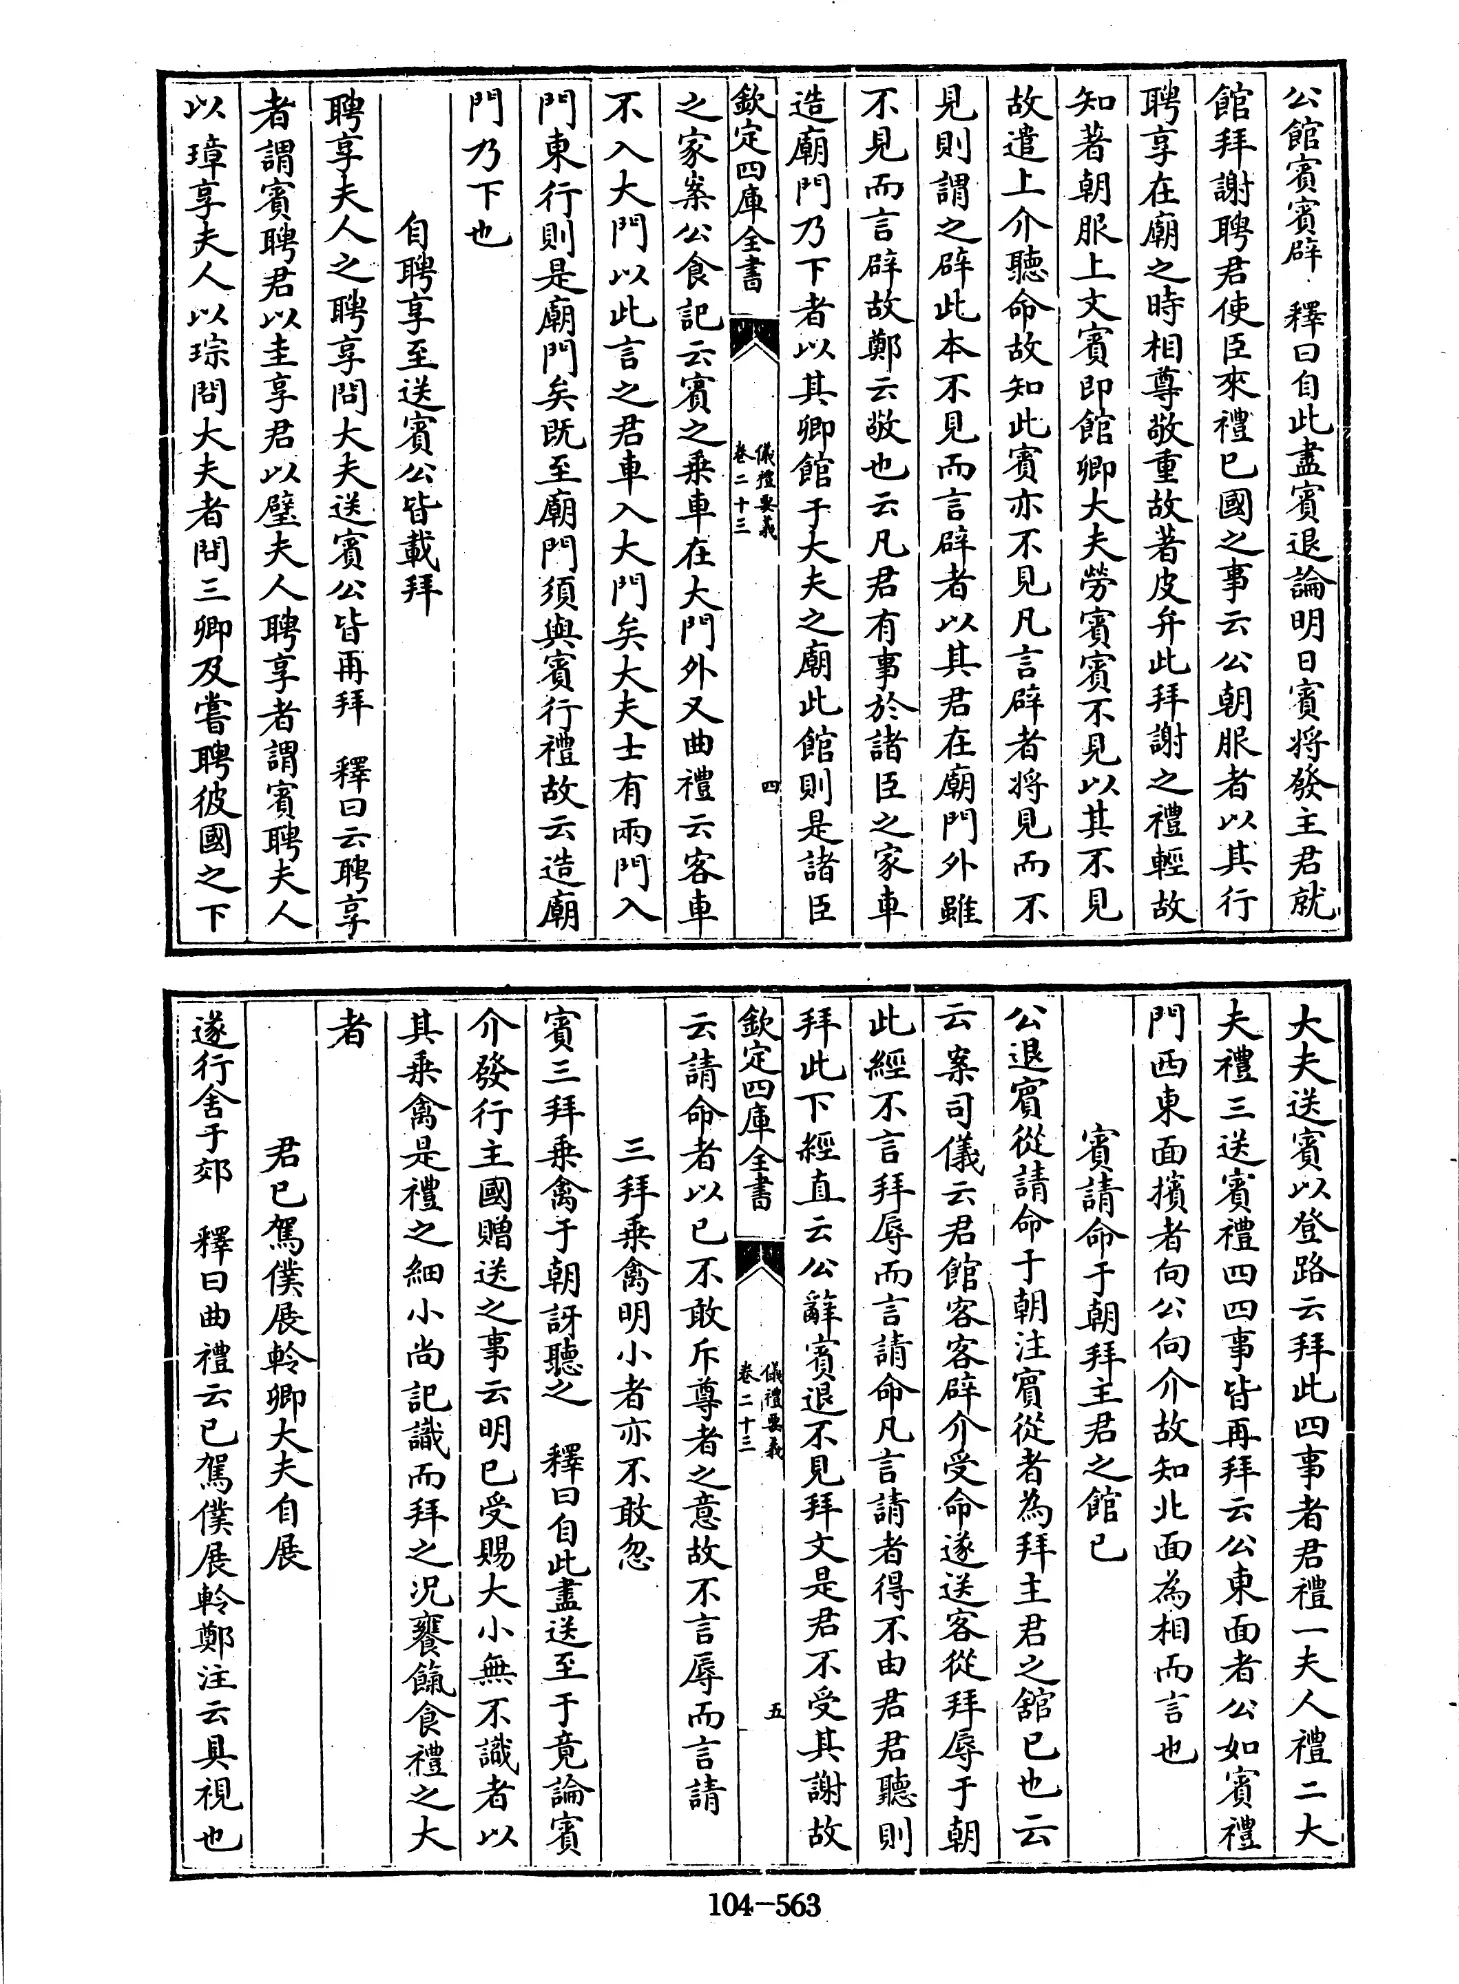 公館賓賓辟 釋曰自此盡賓退論明日賓將發主君就
館拜謝聘君使臣來禮已國之事云公朝服者以其行
聘享在廟之時相尊敬重故著皮弁此拜謝之禮輕故
知著朝服上文賓即館卿大夫勞賓賓不見以其不見
故遣上介聽命故知此賓亦不見凡言辟者將見而不
見則謂之辟此本不見而言辟者以其君在廟門外雖
不見而言辟故鄭云敬也云凡君有事於諸臣之家車
造廟門乃下者以其卿館于大夫之廟此館則是諸臣
欽定四庫全書
儀禮要義
卷二十三
四
之家案公食記云賓之乘車在大門外又曲禮云客車
不入大門以此言之君車入大門矣大夫士有兩門入
門東行則是廟門矣既至廟門須與賓行禮故云造廟
門乃下也
自聘享至送賓公皆載拜
聘享夫人之聘享問大夫送賓公皆再拜 釋曰云聘享
者謂賓聘君以圭享君以璧夫人聘享者謂賓聘夫人
以璋享夫人以琮問大夫者問三卿及嘗聘彼國之下
大夫送賓以登路云拜此四事者君禮一夫人禮二大
夫禮三送賓禮四四事皆再拜云公東面者公如賓禮
門西東面擯者向公向介故知北面為相而言也
賓請命于朝拜主君之館已
公退賓從請命于朝注賓從者為拜主君之舘已也云
云案司儀云君館客客辟介受命遂送客從拜辱于朝
此經不言拜辱而言請命凡言請者得不由君君聽則
拜此下經直云公辭賓退不見拜文是君不受其謝故
欽定四庫全書
儀禮要義
卷二十三
五
云請命者以已不敢斥尊者之意故不言辱而言請
三拜乘禽明小者亦不敢忽
賓三拜乘禽于朝訝聽之 釋曰自此盡送至于竟論賓
介發行主國贈送之事云明已受賜大小無不識者以
其乘禽是禮之細小尚記識而拜之况饔餼食禮之大
者
君已駕僕展軨卿大夫自展
遂行舍于郊 釋曰曲禮云已駕僕展軨鄭注云具視也
104-563